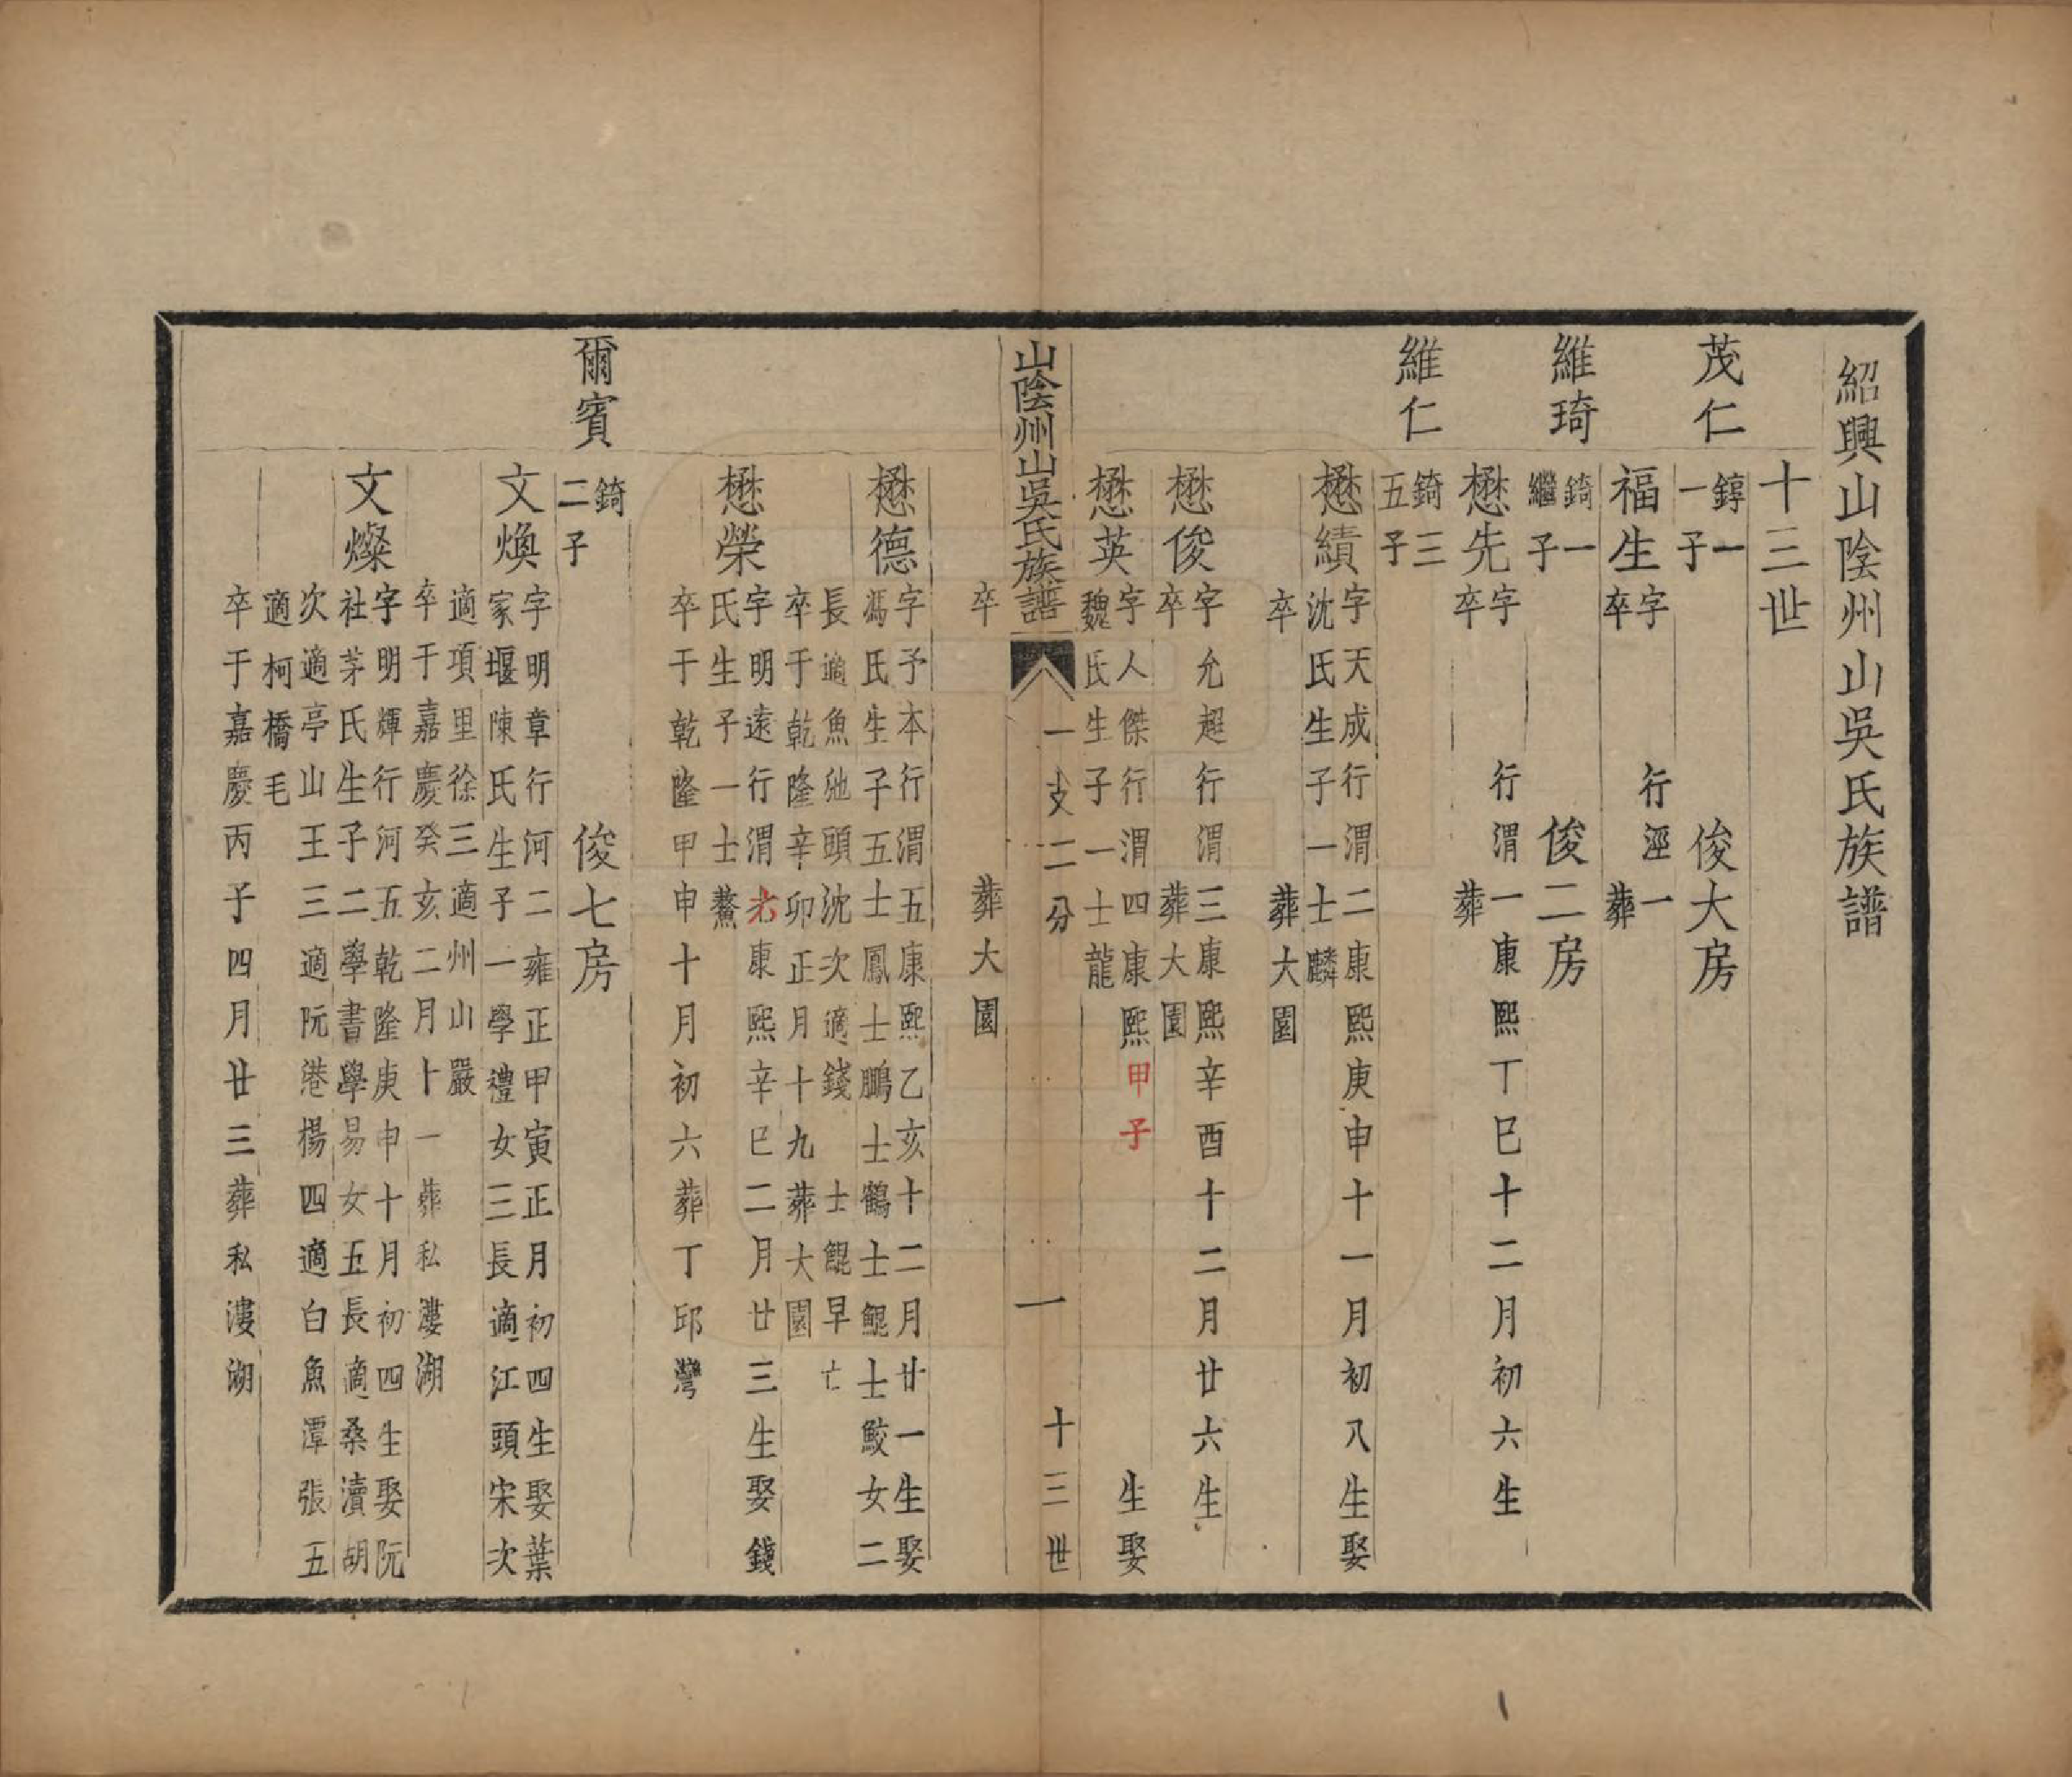 紹興山陰州山吳氏族譜
十三世
茂仁
錞一
一子
俊大房
福生
字 行涇一
卒 葬
維琦
錡一
繼子
俊二房
懋先
字 行渭一康熙丁巳十二月初六生
卒 葬
維仁
錡三
五子
懋績
字天成行渭二康熙庚申十一月初八生娶
沈氏生子一士麟
卒 葬大園
懋俊
字允超行渭三康熙辛酉十二月廿六生
卒 葬大園
懋英
字人傑行渭四康熙甲子 生娶
魏氏生子一士龍
山陰州山吳氏族譜
一支二分
一
十三世
卒 葬大園
懋德
字予本行渭五康熙乙亥十二月廿一生娶
馮氏生子五士鳳士鵬士鶴士鯤士鮫女二
長適魚池頭沈次適錢 士鯤早亡
卒于乾隆辛卯正月十九葬大園
懋榮
字明遠行渭六康熙辛巳二月廿三生娶錢
氏生子一士鰲
卒于乾隆甲申十月初六葬丁邱灣
爾賓
錡
二子
俊七房
文煥
字明章行河二雍正甲寅正月初四生娶葉
家堰陳氏生子一學禮女三長適江頭宋次
適項里徐三適州山嚴
卒于嘉慶癸亥二月十一葬私漊湖
文燦
字明輝行河五乾隆庚申十月初四生娶阮
社茅氏生子二學書學易女五長適桑瀆胡
次適亭山王三適阮港楊四適白魚潭張五
適柯橋毛
卒于嘉慶丙子四月廿三葬私漊湖